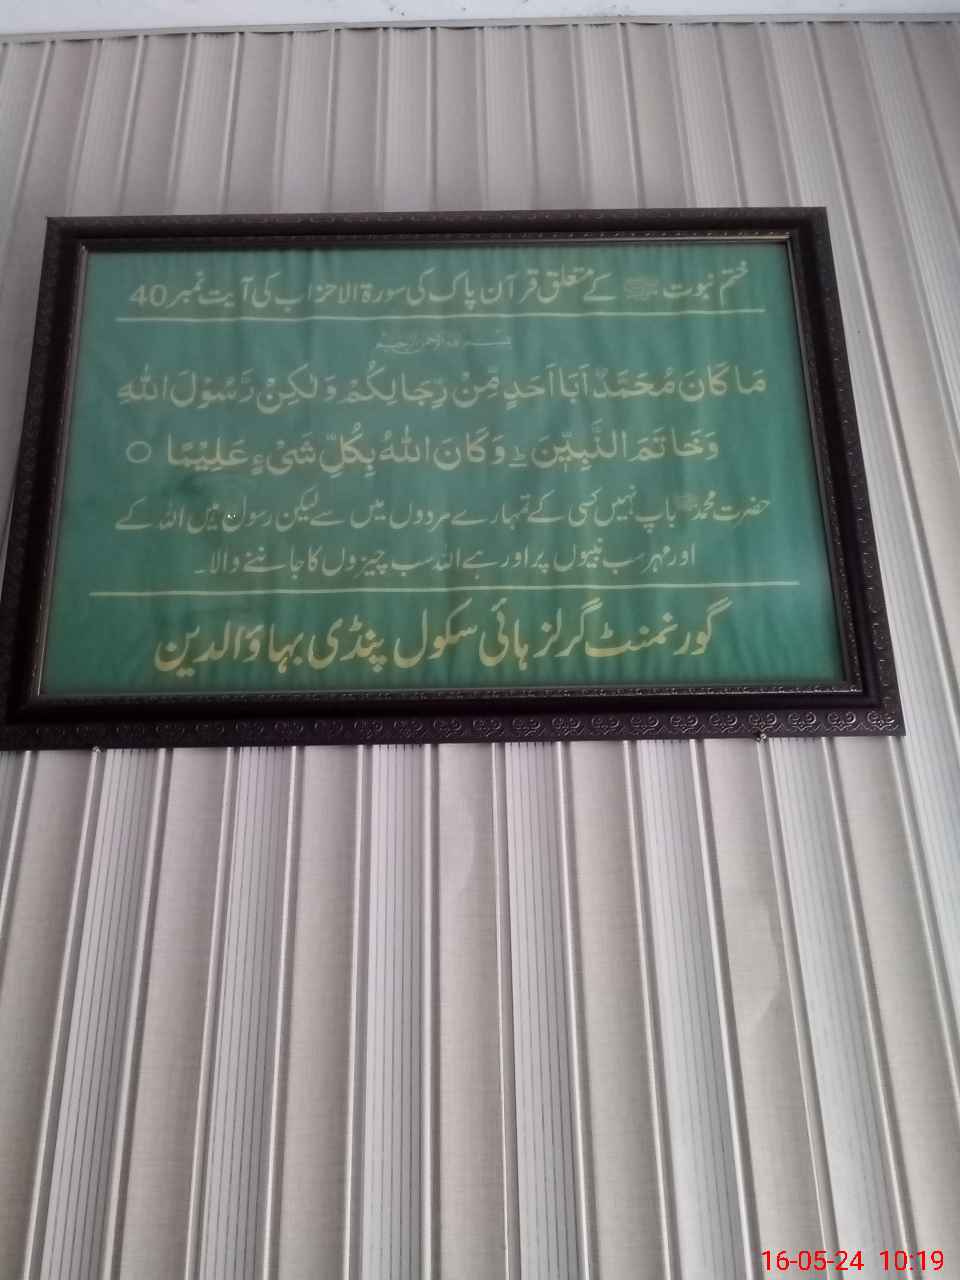 ختم نبوت ﷺ کے متعلق قرآن پاک کی سورۃ الاحزاب کی آیت نمبر 40
بسم اللہ الرحمن الرحیم
مَا كَانَ مُحَمَّدٌ اَبَآ اَحَدٍ مِّنْ رِّجَالِكُمْ وَلٰكِنْ رَّسُوْلَ اللّٰهِ
وَخَاتَمَ النَّبِيّٖنَ ؕ وَكَانَ اللّٰهُ بِكُلِّ شَيْءٍ عَلِيْمًا ○
حضرت محمد ﷺ باپ نہیں کسی کے تمہارے مردوں میں سے لیکن رسول ہیں اللہ کے
اور مہر سب نبیوں پر اور ہے اللہ سب چیزوں کا جاننے والا۔
گورنمنٹ گرلز ہائی سکول پنڈی بہاؤالدین
16-05-24 10:19